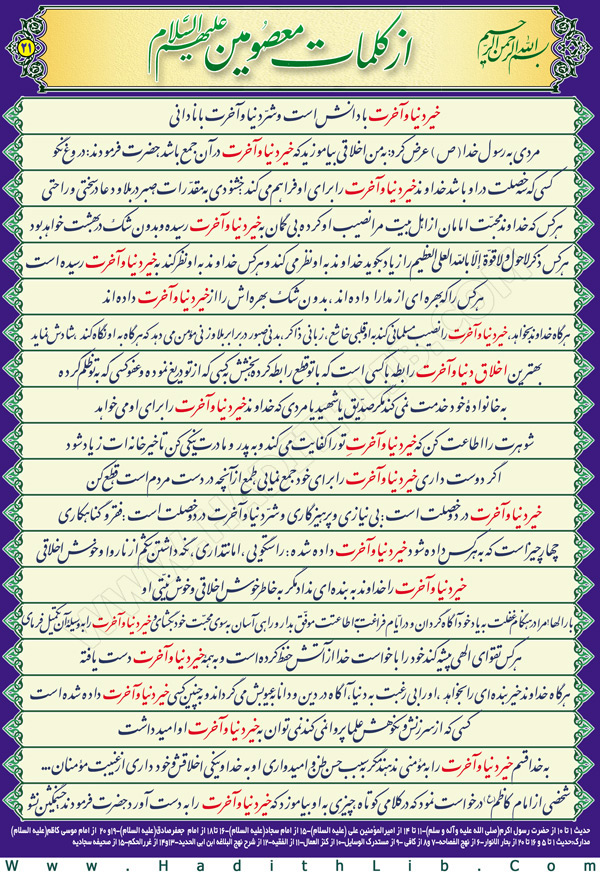 بسم الله الرحمن الرحیم
از کلمات معصومین علیهم السلام
۲۱
خیر دنیا و آخرت با دانش است و شرّ دنیا و آخرت با نادانی
مردی به رسول خدا (ص) عرض کرد: به من اخلاقی بیاموزید که خیر دنیا و آخرت در آن جمع باشد، حضرت فرمودند: دروغ نگو
کسی که خصلت در او باشد خداوند خیر دنیا و آخرت را برای او فراهم می کند: خشنودی به مقدّرات صبر در بلا و دعا در سختی و راحتی
هر کس که خداوند محبّت امامان از اهل بیت مرا نصیب او کرده بی گمان به خیر دنیا و آخرت رسیده و بدون شک در بهشت خواهد بود
هر کس ذکر لاحول ولا قوة إلّا بالله العلی العظیم را زیاد بگوید خداوند به او نظر می کند و هر کس خداوند به او نظر کند به خیر دنیا و آخرت رسیده است
هر کس را که بهره ای از مدارا داده اند، بدون شک بهره اش را از خیر دنیا و آخرت داده اند
هرگاه خداوند بخواهد، خیر دنیا و آخرت را نصیب مسلمانی کند به او قلبی خاشع، زبانی ذاکر، بدنی صبور در برابر بلا و زنی مؤمن می دهد که هرگاه به او نگاه کند، شادش نماید
بهترین اخلاق دنیا و آخرت رابطه با کسی است که با تو قطع رابطه کرده بخشش کسی که از تو دریغ نموده و عفو کسی که به تو ظلم کرده
به خانواده خود خدمت نمی کند مگر صدیق یا شهید یا مردی که خداوند خیر دنیا و آخرت را برای او می خواهد
شوهرت را اطاعت کن که خیر دنیا و آخرت تو را کفایت می کند و به پدر و مادرت نیکی کن تا خیر خانه ات زیاد شود
اگر دوست داری خیر دنیا و آخرت را برای خود جمع نمایی طمع از آنچه در دست مردم است قطع کن
خیر دنیا و آخرت در دو خصلت است: بی نیازی و پرهیزگاری و شرّ دنیا و آخرت در دو خصلت است: فقر و گناهکاری
چهار چیز است که به هر کس داده شود خیر دنیا و آخرت داده شده: راستگویی، امانتداری، نگه داشتن شکم از ناروا و خوش اخلاقی
خیر دنیا و آخرت را خداوند به بنده ای نداد مگر به خاطر خوش اخلاقی و خوش نیّتی او
بارالها مرا در هنگام غفلت به یاد خود آگاه کردان و در ایام فراغت به اطاعتت موفّق بدار و راهی آسان به سوی محبت خود بگشا می خیر دنیا و آخرت را به وسیله آن تکمیل فرمای
هر کس تقوای الهی پیشه کند خود را با خواست خدا از آتش حفظ کرده است و به همه خیر دنیا و آخرت دست یافته
هرگاه خداوند خیر بنده ای را بخواهد، او را بی رغبت به دنیا، آگاه در دین و دانا به عیوبش می گرداند و به چنین کسی خیر دنیا و آخرت داده شده است
کسی که از سرزنش و نکوهش علما پروا نمی کند نمی توان به خیر دنیا و آخرت او امید داشت
به خدا قسم خیر دنیا و آخرت را به مؤمنی ندهند مگر به سبب حسن ظن و امیدواری او به خدا و نیکی اخلاقش و خودداری از غیبت مؤمنان...
شخصی از امام کاظم (ع) درخواست نمود که در کلامی کوتاه چیزی به او بیاموزد که خیر دنیا و آخرت را به دست آورد حضرت فرمودند خشمگین نشو
حدیث ۱ تا ۱۰ از حضرت رسول اکرم(صلی الله علیه وآله و سلم)-۱۱ تا ۱۴ از امیرالمؤمنین علی (علیه السلام)-۱۵ از امام سجاد(علیه السلام)-۱۶ تا ۱۸ از امام جعفر صادق(علیه السلام)-۱۹ و ۲۰ از امام موسی کاظم(علیه السلام)
مدارک:حدیث ۱ تا ۵ و ۱۶ تا ۲۰ از بحار الانوار-۶ از نهج الفصاحه-۷ و ۸ از کافی -۹ از مستدرک الوسایل-۱۰ از کنز العمال-۱۱ از الفقیه-۱۲ از شرح نهج البلاغه ابن ابی الحدید-۱۳ و ۱۴ از غررالحکم-۱۵ از صحیفه سجادیه
www.HadithLib.com